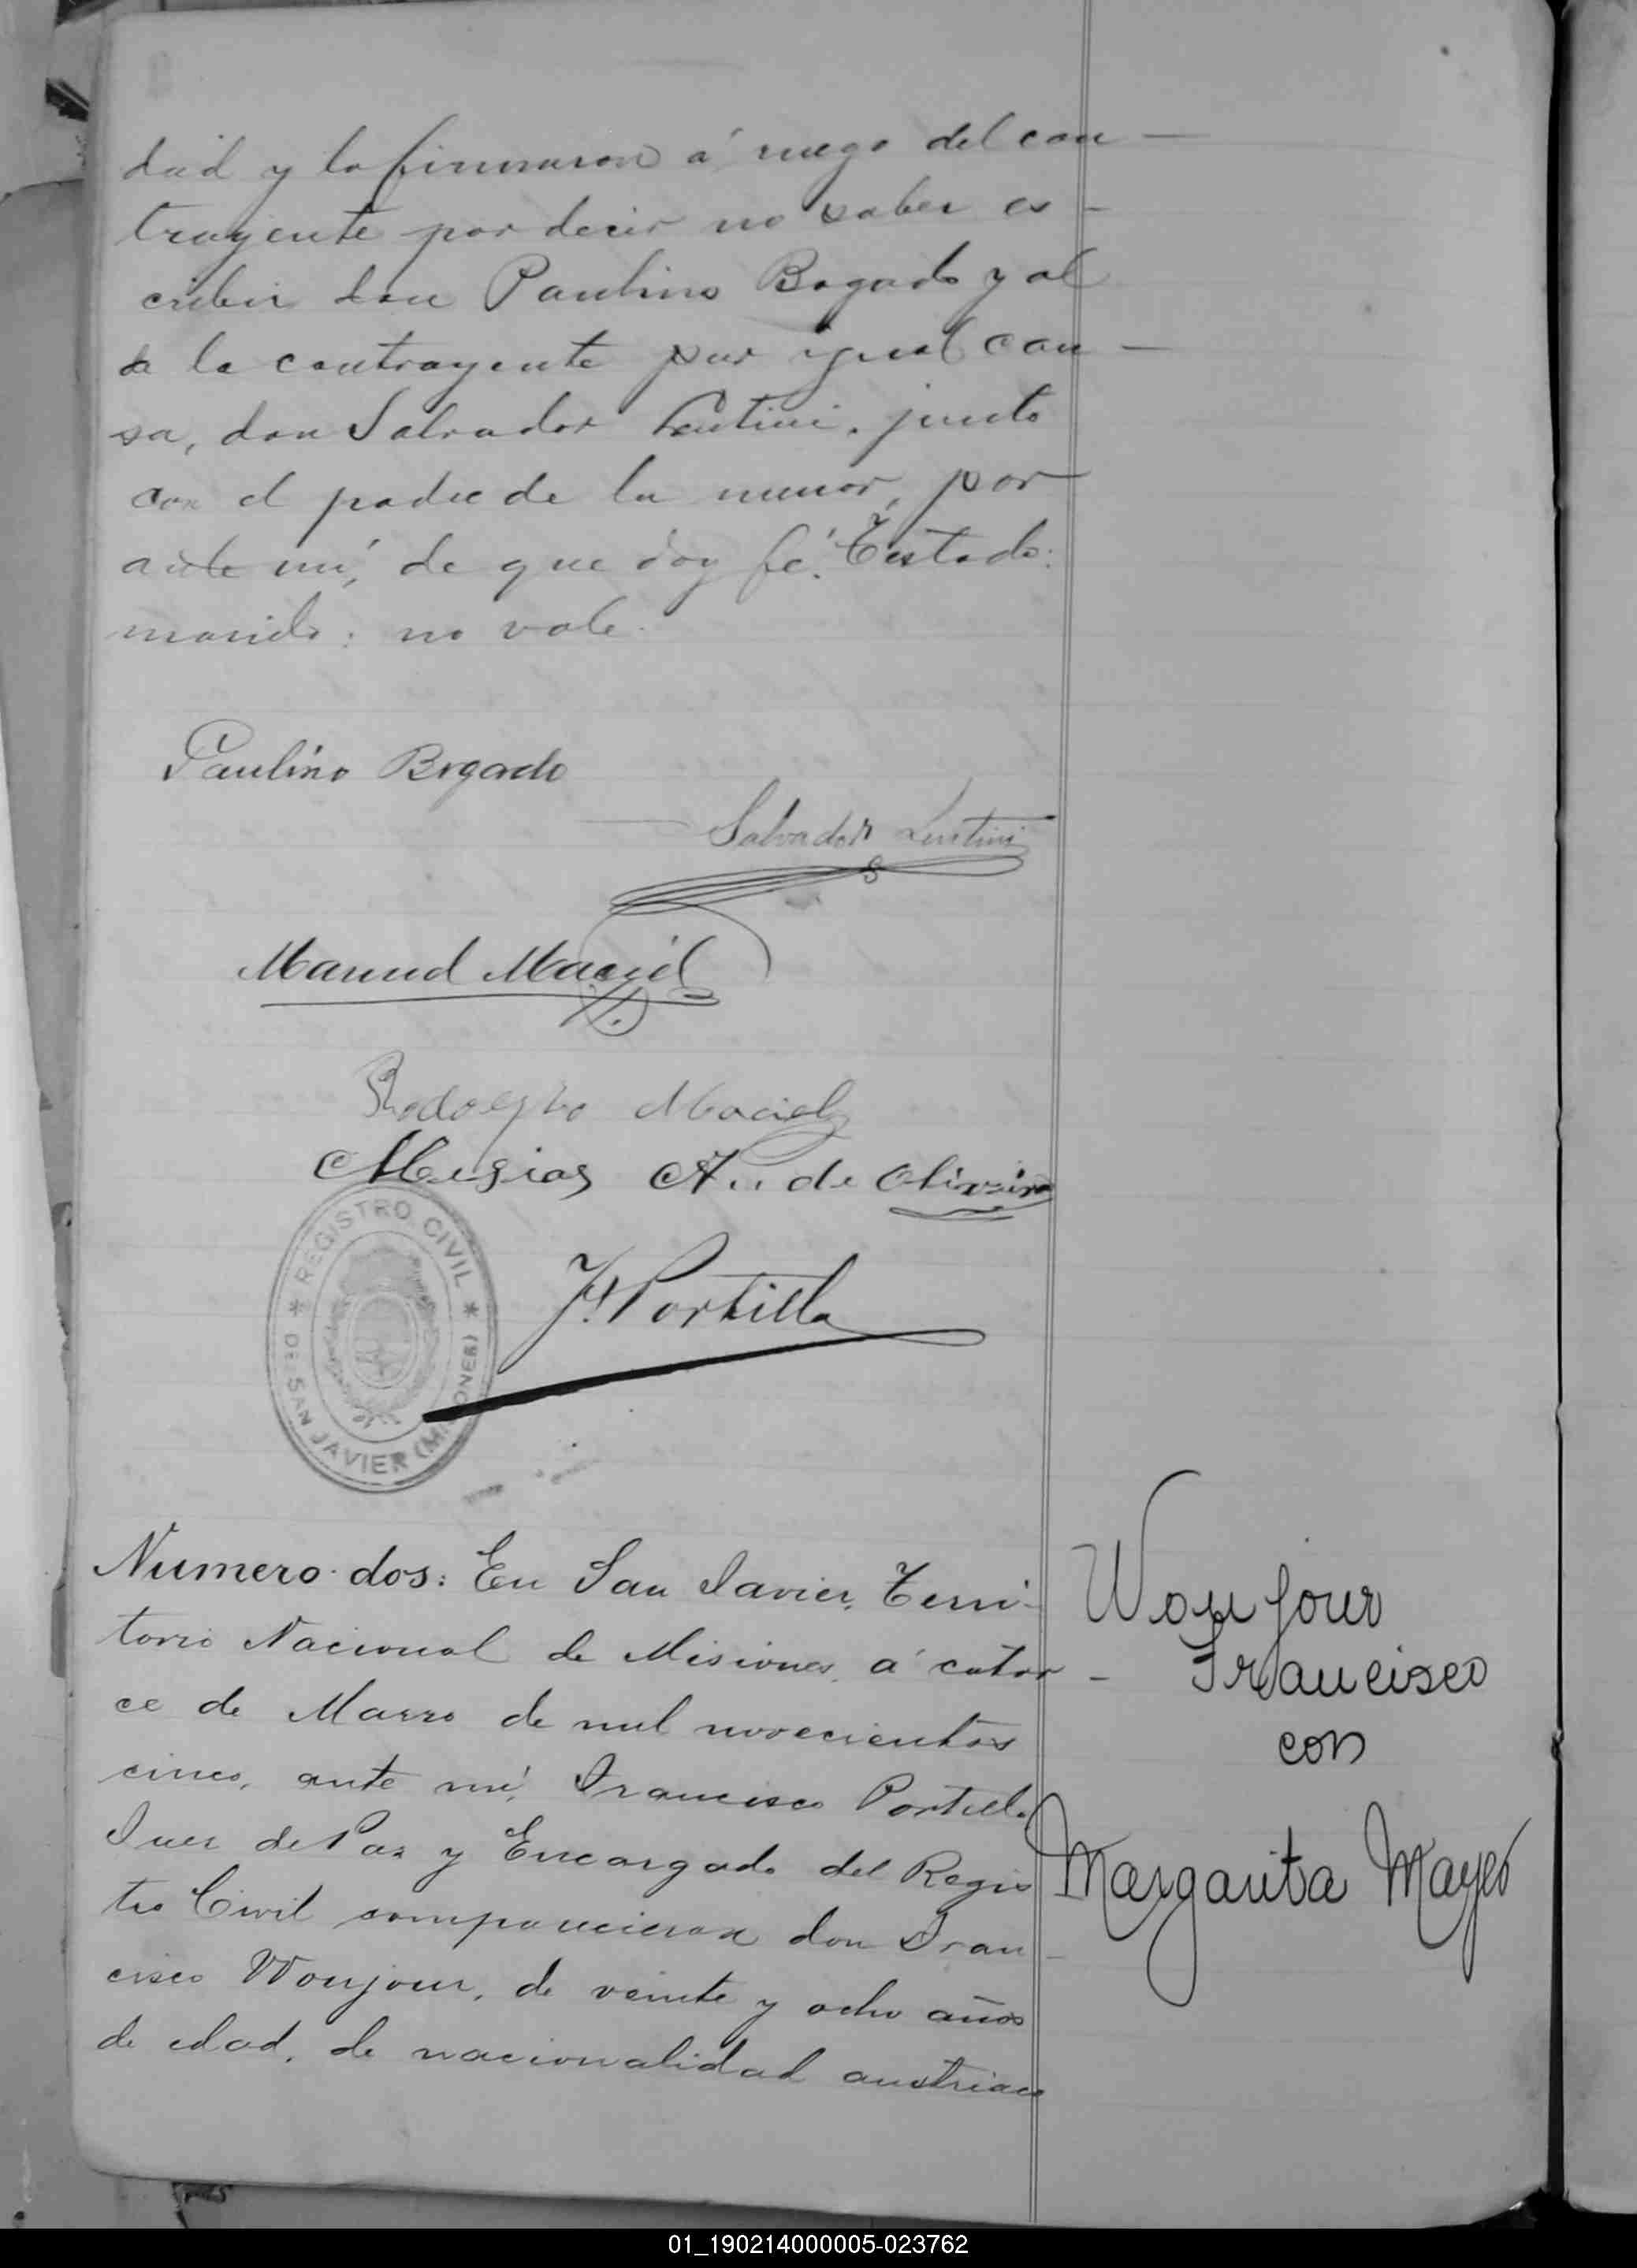 dad y lo firmaron á ruego del con-
trayente por decir no saber es-
cribir don Paulino Bogado y al
de la contrayente por igual cau-
sa, don Salvador Lentini, junto
con el padre de la menor, por
ante mí, de que doy fé. Testado:
marido: no vale.
Paulino Bogado
Salvador Lentini
Manuel Maciel
Rodolpho Maciel
Mesias de Oliveira
REGISTRO CIVIL
DE SAN JAVIER (MISIONES)
F. Portillo
Numero dos: En San Javier, Terri-
torio Nacional de Misiones, á cator-
ce de Marzo de mil novecientos
cinco, ante mí, Francisco Portillo
Juez de Paz y Encargado del Regis
tro Civil comparecieron don Fran-
cisco Wonjour, de veinte y ocho años
de edad, de nacionalidad austriaco
Wonjour
Francisco
con
Margarita Mayer
01_190214000005-023762